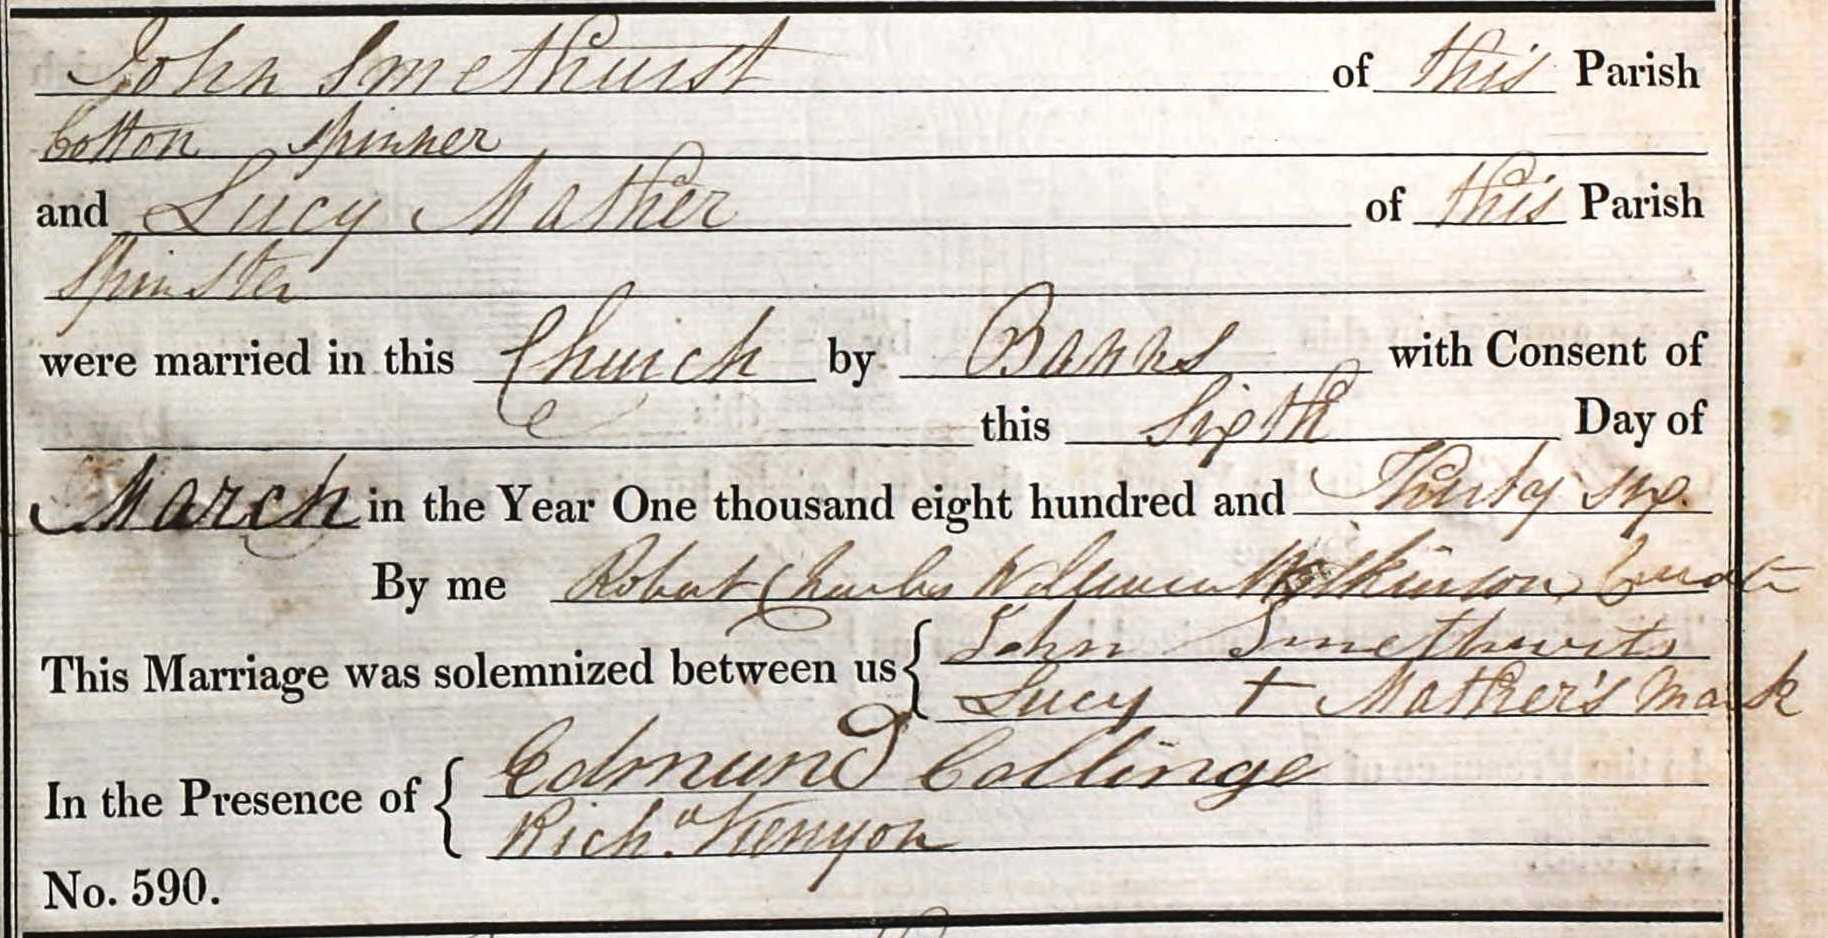 John Smethurst of this Parish
Cotton Spinner
and Lucy Mather of this Parish
Spinster
were married in this Church by Banns with Consent of
this Sixth Day of
March in the Year One thousand eight hundred and Thirty six.
By me Robert Charles William Wilkinson, Curate
This Marriage was solemnized between us { John Smethurst
Lucy + Mather's Mark
In the Presence of { Edmund Collinge
Richd. Kenyon
No. 590.